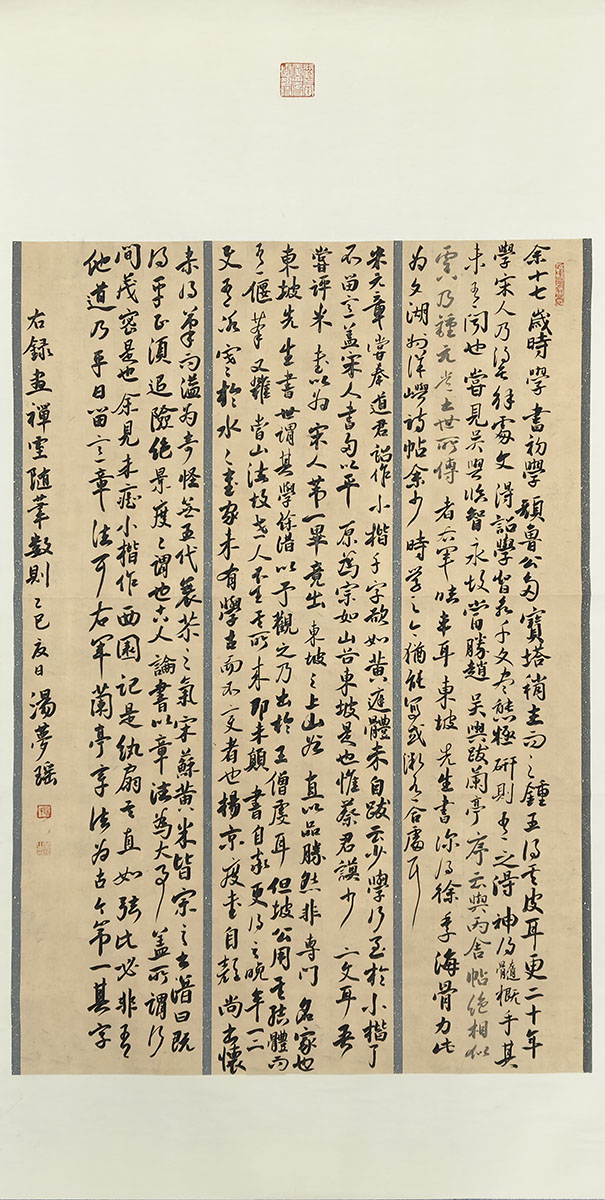 余十七歲時學書初學顏魯公多寶塔稍去而之鍾王得其皮耳更二十年
學宋人乃得其解處文得詔學智永千文盡態極研則有之得神得髓概乎其
未有聞也嘗見吳興臨智永故當勝趙吳興跋蘭亭序云與丙舍帖絕相似
書乃種元常古世所傳者右軍臨本耳東坡先生書深得徐季海骨力此
為文湖州洋嶼詩帖余少時學之今猶能寫或微有合處耳
米元章嘗奉道君詔作小楷千字欲如黃庭體米自跋云少學行至於小楷了
不留意蓋宋人書多以平原為宗如山谷東坡是也惟蔡君謨少變耳吾
嘗評米書以為宋人第一畢竟出東坡之上山谷直以品勝然非專門名家也
東坡先生書世謂其學徐浩以予觀之乃出於王僧虔耳但坡公用其結體而
有偃筆又雜當山法故世人不知其所自耳即米顛書自率更得之晚年一
變有冰寒於水之書家未有學古而不變者也楊景度書自顏尚書懷
素得筆而溢為奇怪無五代衰茶之氣宋蘇黃米皆宗之書譜曰既
得平正須追險絕景度之謂也古人論書以章法為大事蓋所謂行
間茂密是也余見米癡小楷作西園記是紈扇其直如弦此必非有
他道乃平日留意章法耳右軍蘭亭章法為古今第一其字
右錄畫禪室隨筆數則乙巳夏日湯夢瑶